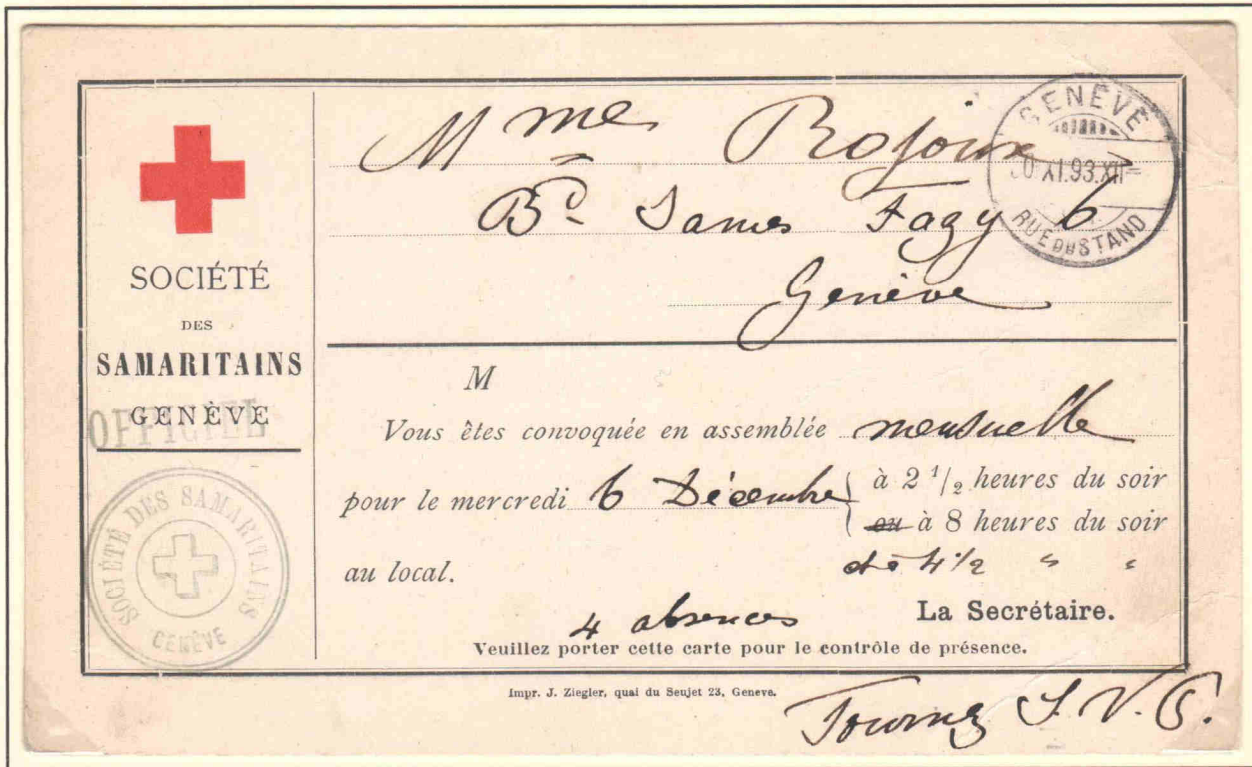 SOCIÉTÉ
DES
SAMARITAINS
GENÈVE
OFFICIEL
SOCIÉTÉ DES SAMARITAINS
GENÈVE
Mme Rojoux
Bd James Fazy 6
Genève
GENÈVE
XI.93.XII
RUE DU STAND
M
Vous êtes convoquée en assemblée mensuelle
pour le mercredi 6 Décembre à 2 1/2 heures du soir
ou à 8 heures du soir
au local. et à 4 1/2 " "
La Secrétaire.
4 absences
Veuillez porter cette carte pour le contrôle de présence.
Impr. J. Ziegler, quai du Seujet 23, Geneve.
Tournez S. V. P.